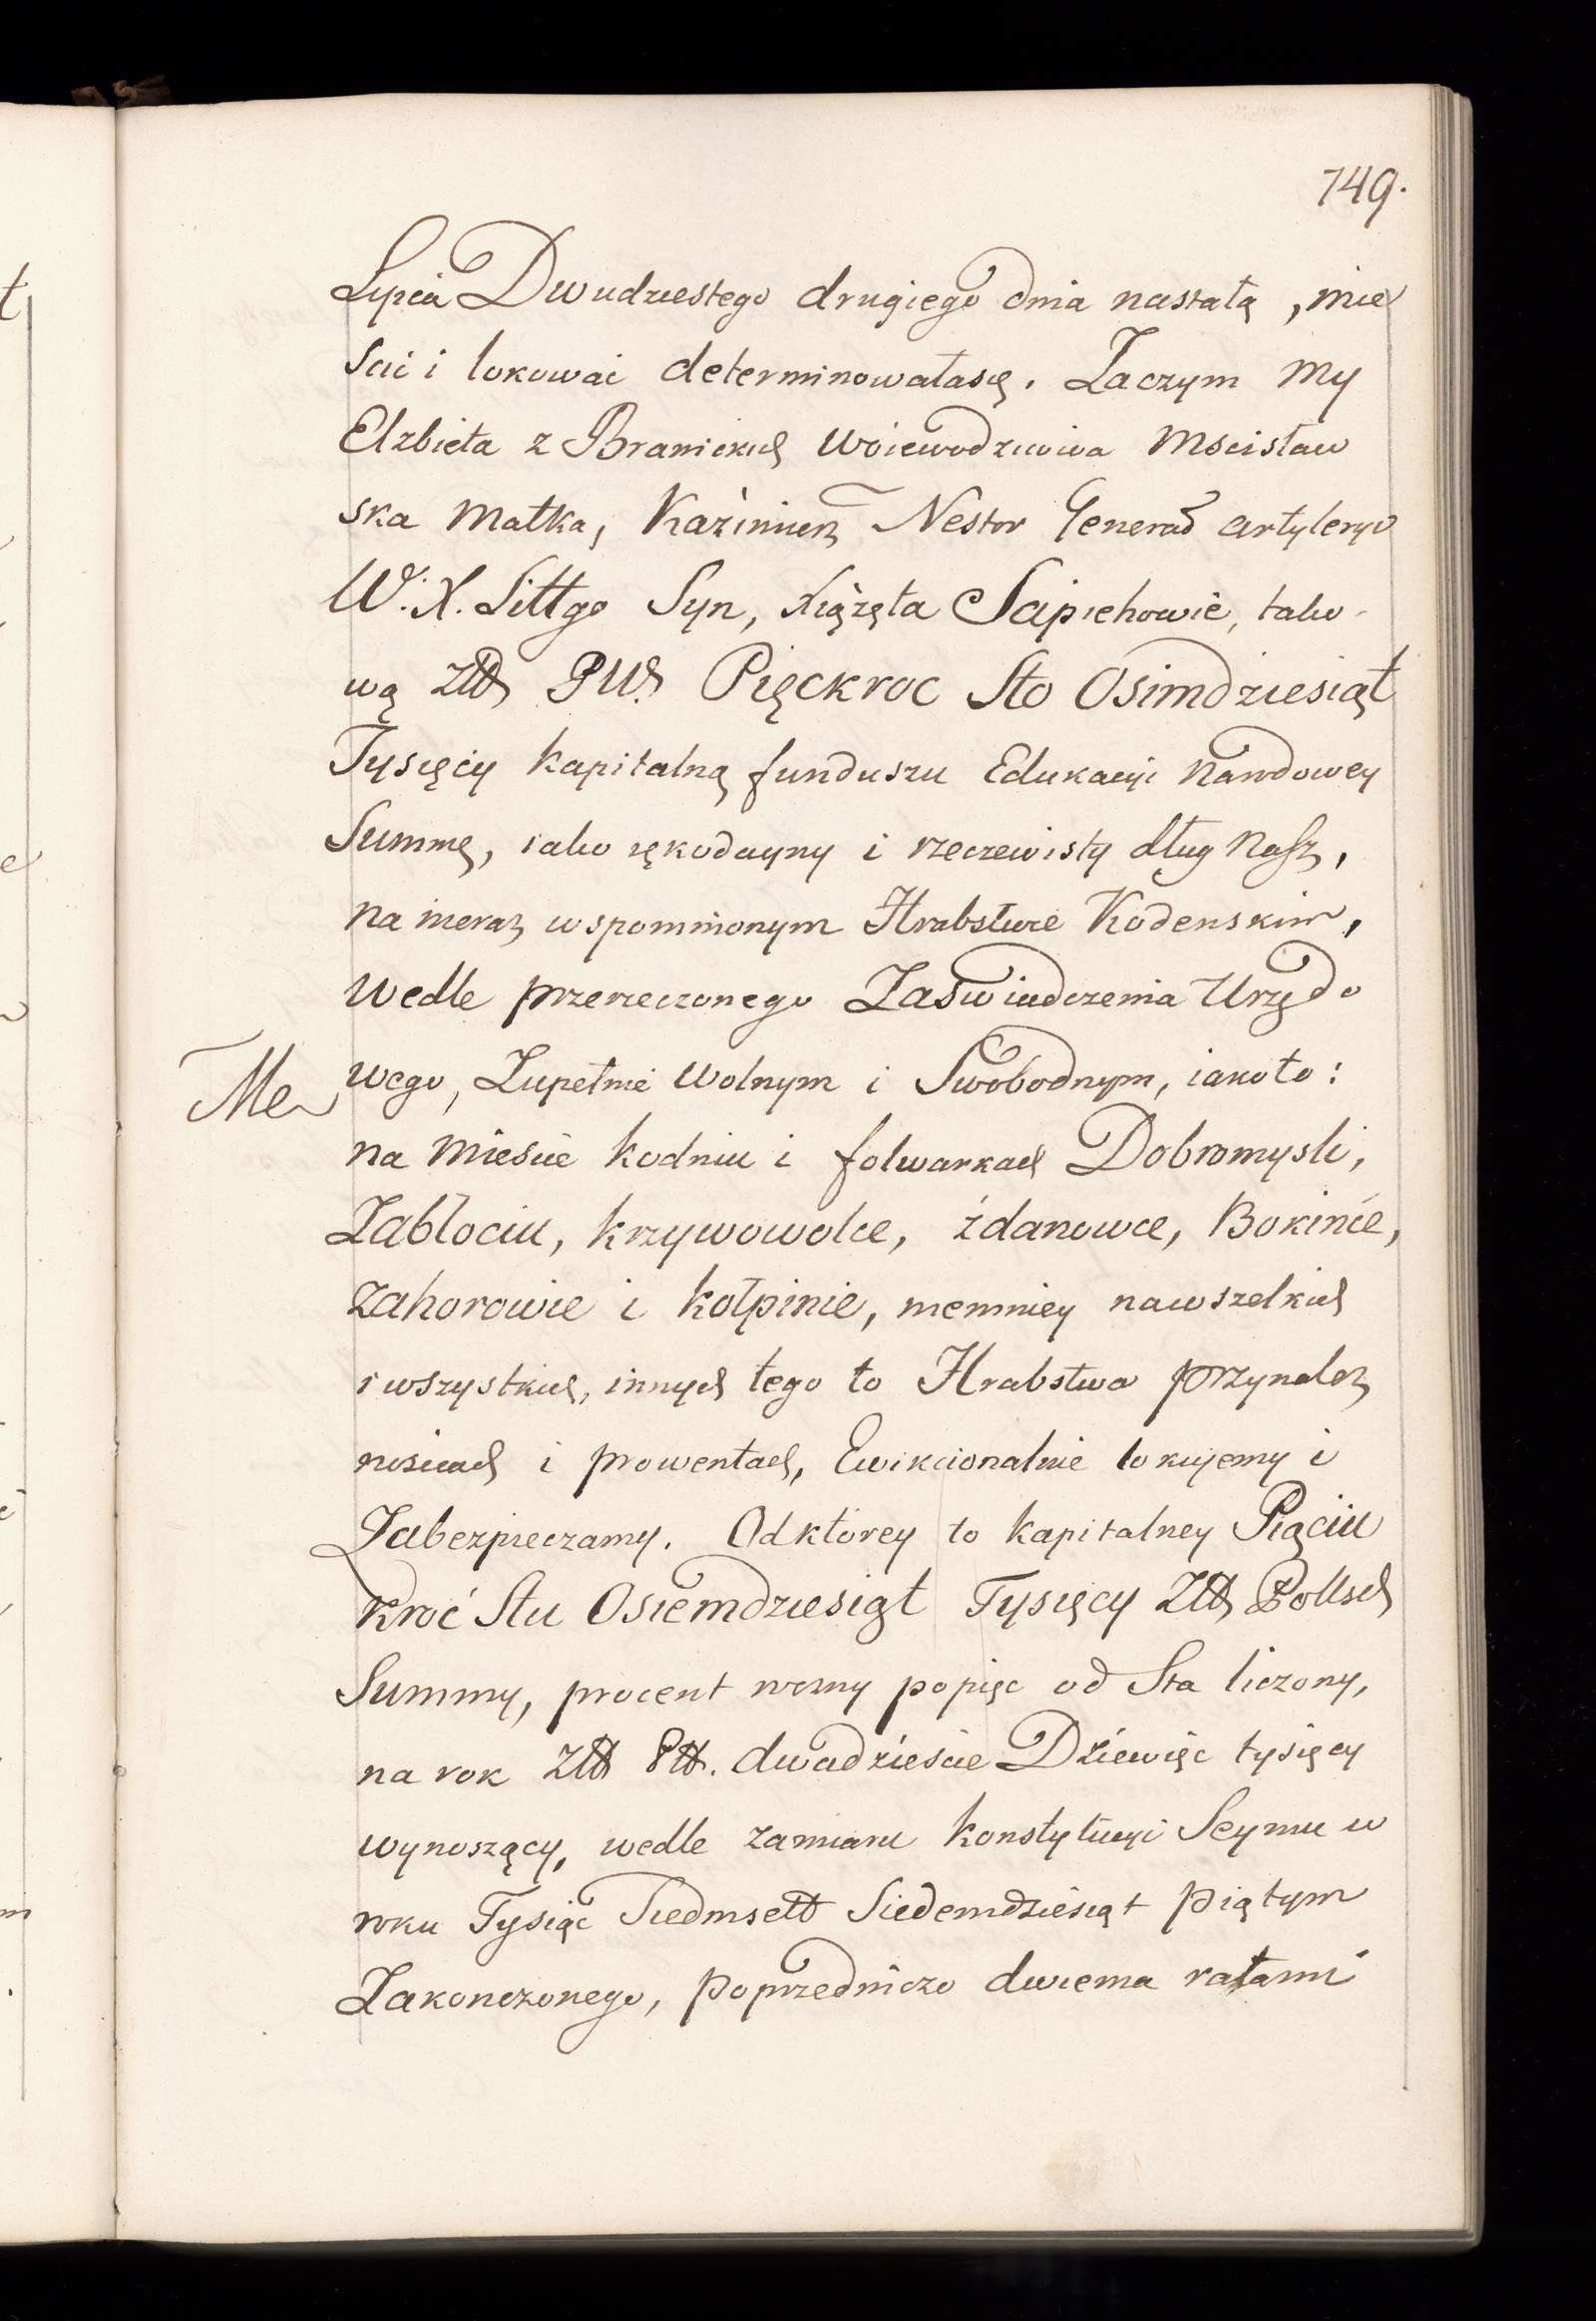 749.
Lipca Dwudziestego drugiego dnia nastałą, mie
scić i lokować determinowałasię. Zaczym My
Elzbieta z Branickich Woiewodzicowa Mscisław
ska Matka, Kaźimierz Nestor Generał artyleryi
W. X. Littgo Syn, Xiążęta Sapiehowie, tako
wą Złł Pol. Pięckroc Sto Osimdziesiąt
Tysięcy kapitalną funduszu Edukacyi Narodowey
Summę, iako rękodayny i rzeczewisty dług Nasz,
na nieraz wspomnionym Hrabstwie Kodenskim,
wedle przerzeczonego Zaswiadczenia Urzędo
wego, Zupełnie wolnym i Swobodnym, iakoto:
na Miescie Kodniu i folwarkach Dobromysli,
Zabłociu, Krzywowolce, źdanowce, Bokinie,
Zahorowie i Kołpinie, niemniey nawszelkich
i wszystkich, innych tego to Hrabstwa przynależ
nosciach i prowentach, Ewikcionalnie lokujemy i
Zabezpieczamy. Odktórey to kapitalney Pięciu
kroć Stu Osiemdziesiąt Tysięcy Złł Pollsch
Summy, procent roczny popięc od Sta liczony,
na rok Złł Pll. dwadzieście Dziewięc tysięcy
wynoszący, wedle zamiaru Konstytucyi Seymu w
roku Tysiąc Siedmsett Siedemdziesiąt Piątym
Zakonczonego, poprzedniczo dwiema ratami